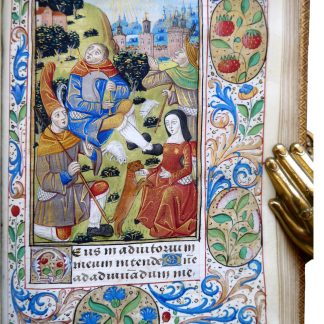 Deus in adiutorium
meum intende Dne
ad adiuuandum me.